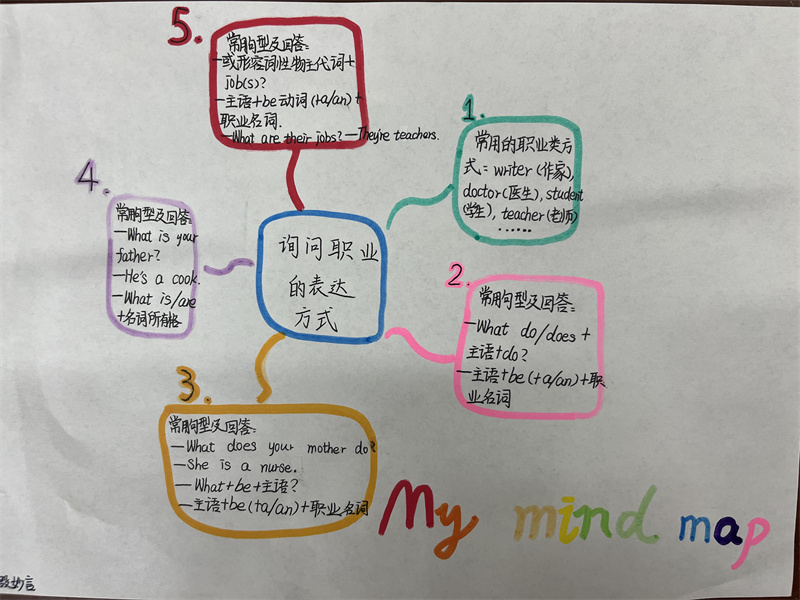 询问职业
的表达
方式
1.
常用的职业类方
式：writer(作家),
doctor(医生), student
(学生), teacher(老师)
……
2.
常用句型及回答：
—What do/does +
主语+do?
—主语+be(+a/an)+职
业名词
3.
常用句型及回答：
—What does your mother do?
—She is a nurse.
—What+be+主语?
—主语+be(+a/an)+职业名词
4.
常用句型及回答：
—What is your
father?
—He's a cook.
—What is/are
+名词所有格
5.
常用句型及回答：
—或形容词性物主代词+
job(s)?
—主语+be动词(+a/an)+
职业名词.
—What are their jobs? —They're teachers.
My mind map